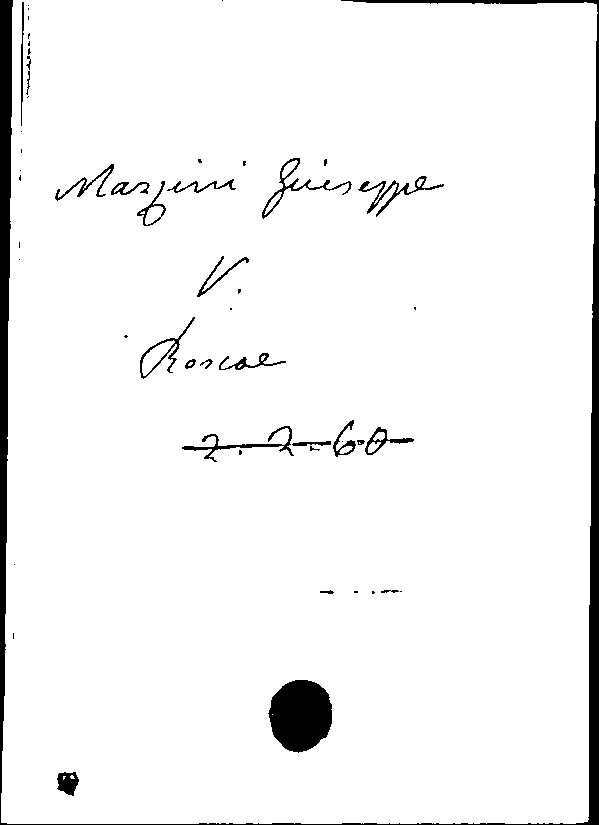 Mazzini Giuseppe
V.
Roscoe
2.2.60